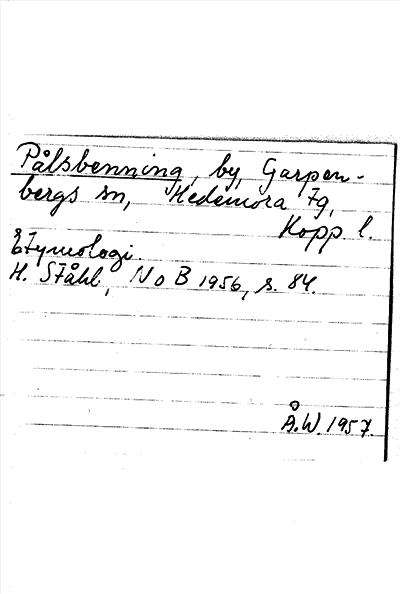 Pålsbenning, by, Garpen-
bergs sn, Hedemora tg,
Kopp. l.
Etymologi.
H. Ståhl, NoB 1956, s. 84.
Å.W. 1957.